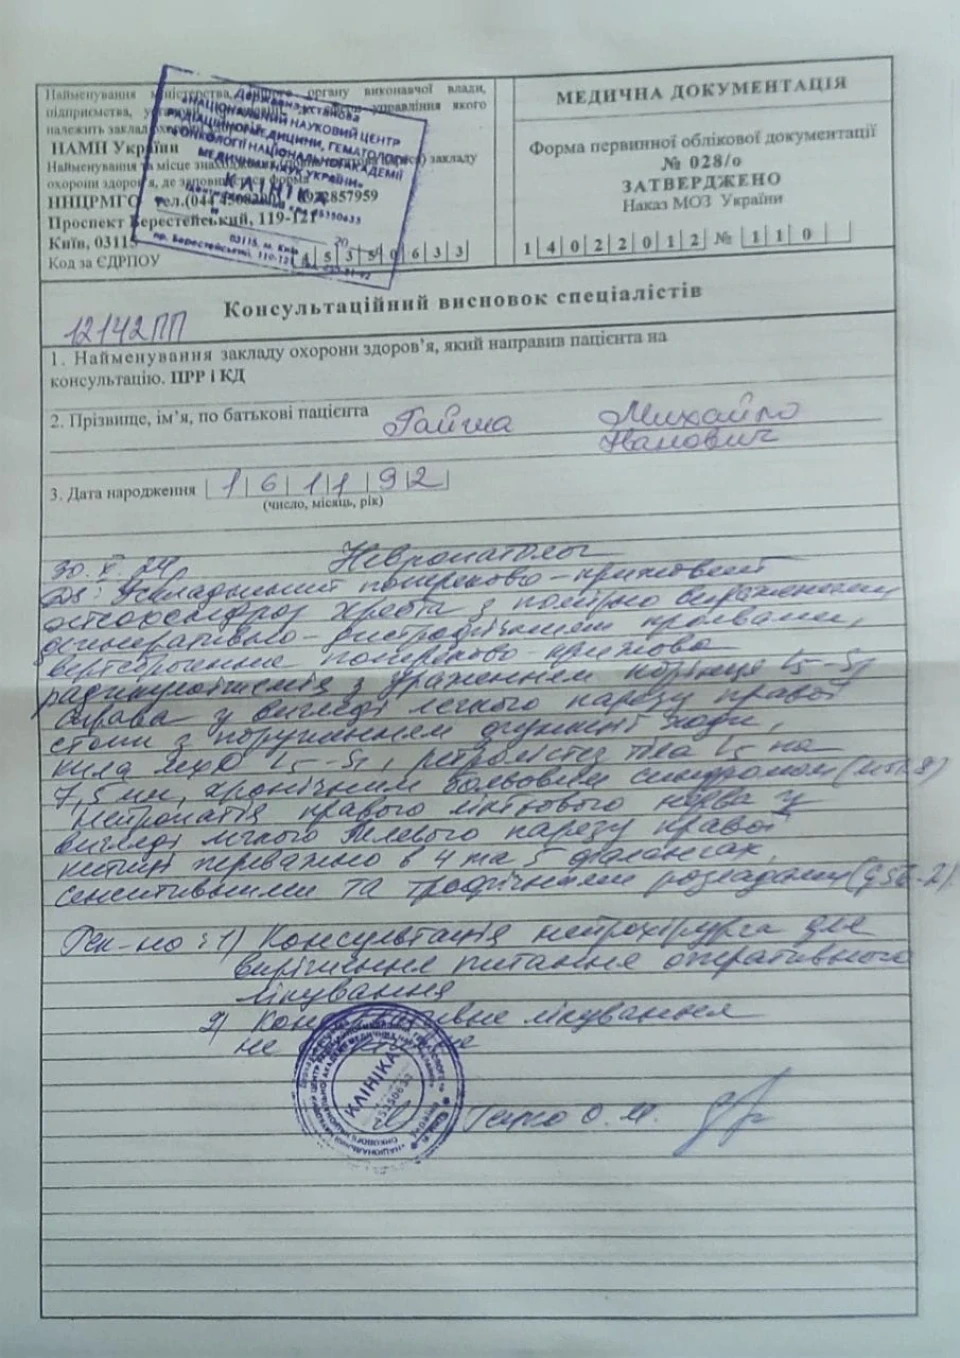 Найменування міністерства, іншого органу виконавчої влади,
підприємства, управління якого
належить заклад
НАМН України
Найменування та місце закладу
охорони здоров'я, де заповнюється форма
ННЦРМГО тел.(044
Проспект Берестейський, 119-121
Київ, 03115
Код за ЄДРПОУ 4 5 3 5 0 6 3 3
Державна установа
«НАЦІОНАЛЬНИЙ НАУКОВИЙ ЦЕНТР
РАДІАЦІЙНОЇ МЕДИЦИНИ, ГЕМАТОЛОГІЇ
ТА ОНКОЛОГІЇ НАЦІОНАЛЬНОЇ АКАДЕМІЇ
МЕДИЧНИХ НАУК УКРАЇНИ»
КЛІНІКА
03115, м. Київ
МЕДИЧНА ДОКУМЕНТАЦІЯ
Форма первинної облікової документації
№ 028/о
ЗАТВЕРДЖЕНО
Наказ МОЗ України
1 4 0 2 2 0 1 2 № 1 1 0
Консультаційний висновок спеціалістів
12142ПП
1. Найменування закладу охорони здоров'я, який направив пацієнта на
консультацію. ПРР і КД
2. Прізвище, ім'я, по батькові пацієнта Михайло
Іванович
3. Дата народження 1 6 1 1 9 2
(число, місяць, рік)
30. X. 24р Невропатолог
Ds: Ускладнений попереково-крижовий
остеохондроз хребта з помірно вираженими
дегенеративно-дистрофічними проявами,
вертеброгенна попереково-крижова
радикулоішемія з ураженням корінця L5-S1
справа у вигляді легкого парезу правої
стопи з порушенням функції ходи,
кила мхд L5-S1, ретролістез тіла L5 на
7,5 мм, хронічним больовим синдромом
Нейропатія правого ліктьового нерва у
вигляді легкого парезу правої
кисті переважно в 4 та 5 фалангах,
сенситивними та трофічними розладами
Рек-но: 1) Консультація нейрохірурга для
вирішення питання оперативного
лікування
2) Консервативне лікування
не
КЛІНІКА
45350633
О. М.